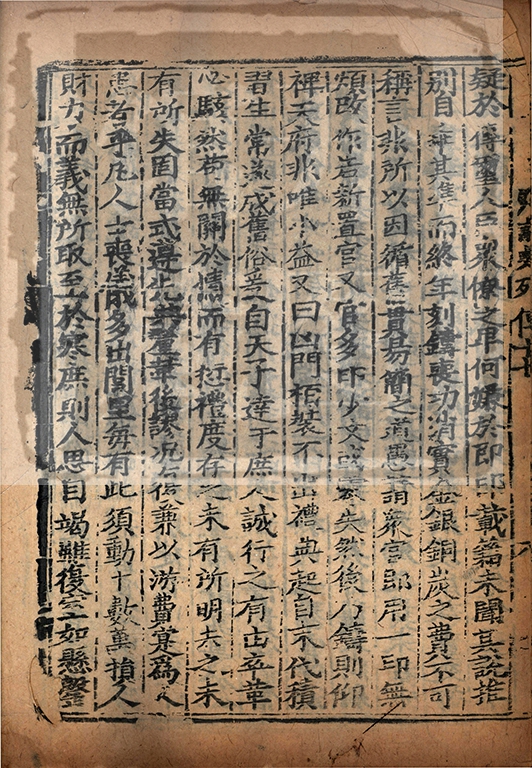 疑於傳璽人臣衆僚之卑何嫌於即印載籍未聞其說推
別自乖其準而終年刻鑄喪功消實金銀銅炭之費不可
稱言非所以因循舊貫易簡之道愚謂衆官即用一印無
煩改作若新置官又官多印少文或零失然後乃鑄則仰
裨天府非唯小益又曰凶門柏裝不出禮典起自末代積
習生常遂成舊俗爰自天子達于庶人誠行之有由卒革
必駭然苟無關於情而有愆禮度存之未有所明去之未
有所失固當式遵先典釐革後謬況復兼以游費寔為人
患者乎凡人士喪儀多出閭里每有此須動十數萬損人
財力而義無所取至於寒庶則人思自竭雖復室如懸罄